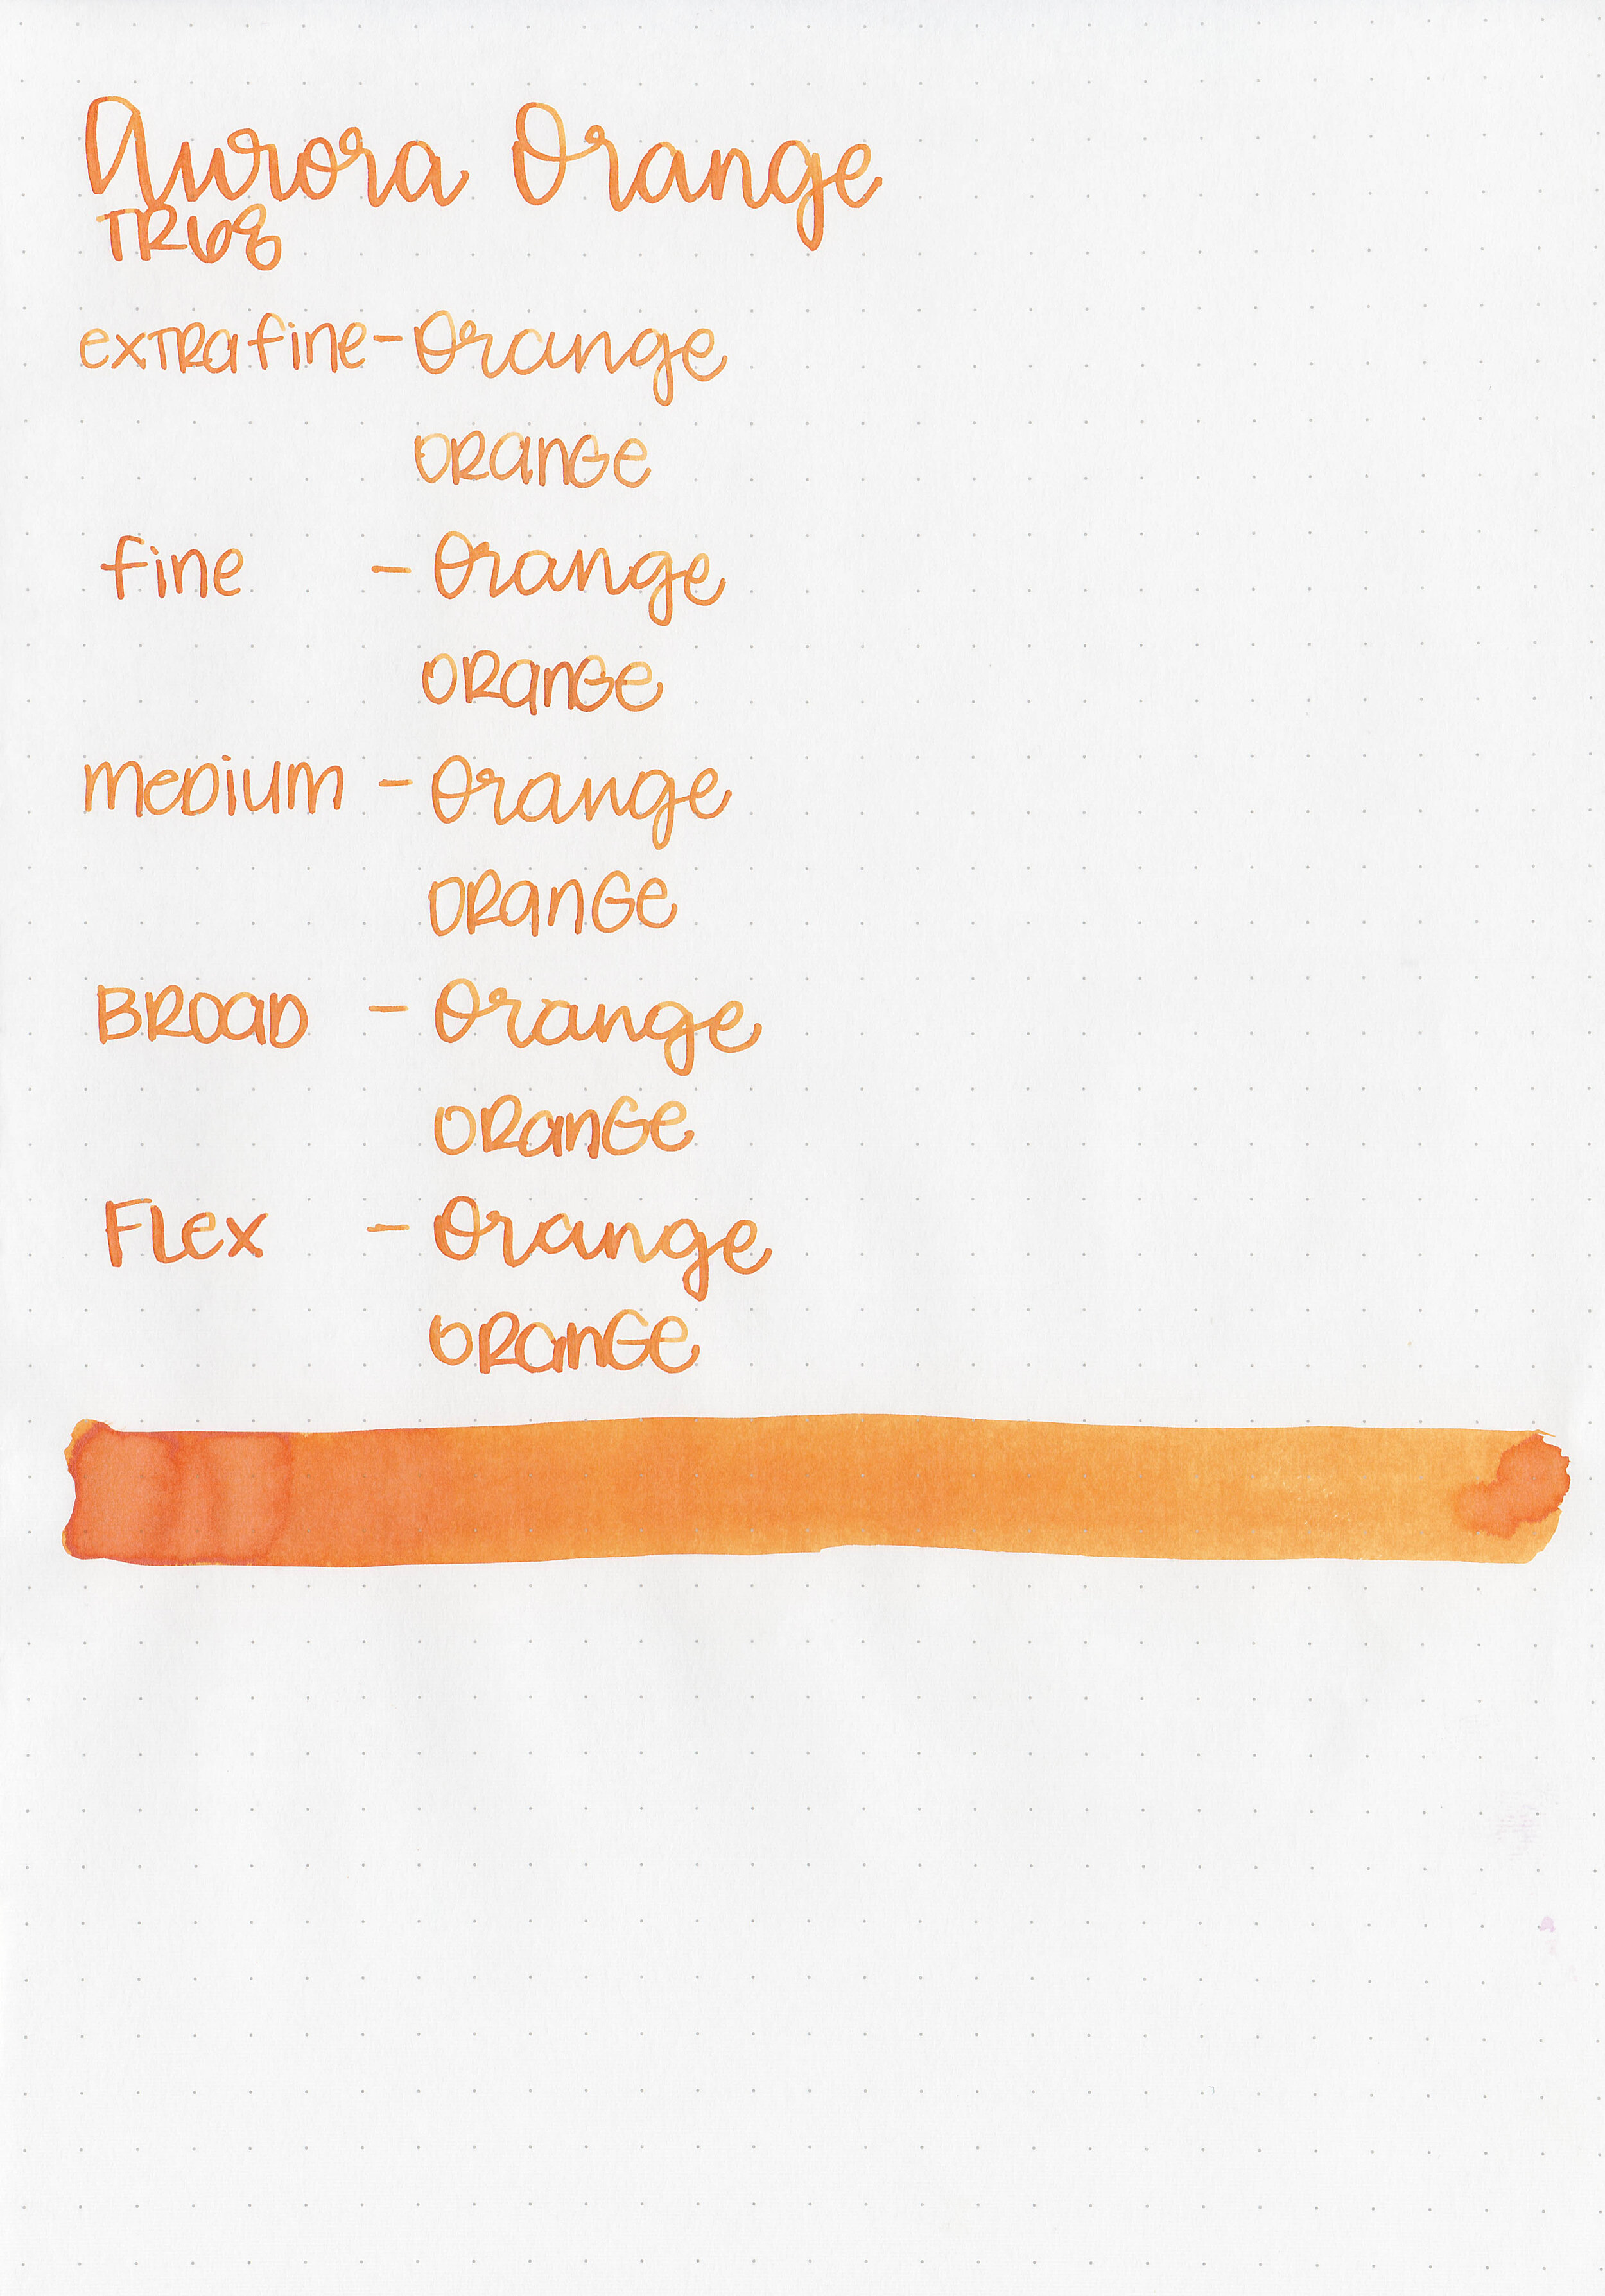 Aurora Orange
TR68
extra fine - Orange
ORanGe
fine - Orange
ORanGe
meDium - Orange
ORanGe
BROaD - Orange
ORanGe
Flex - Orange
ORanGe